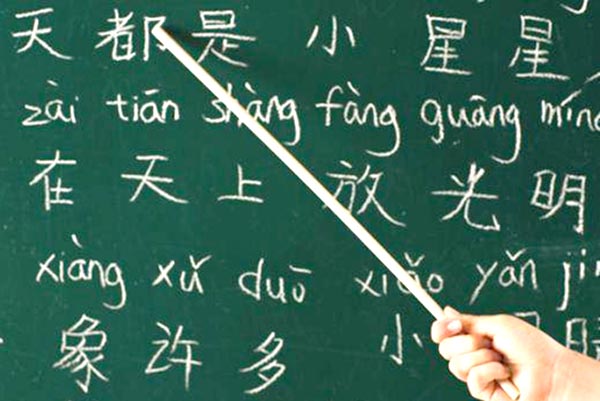 天 都是 小 星星
zài tiān shàng fàng guāng míng
在 天 上 放 光 明
xiàng xǔ duō xiǎo yǎn jīn
象 许 多 小 眼 睛